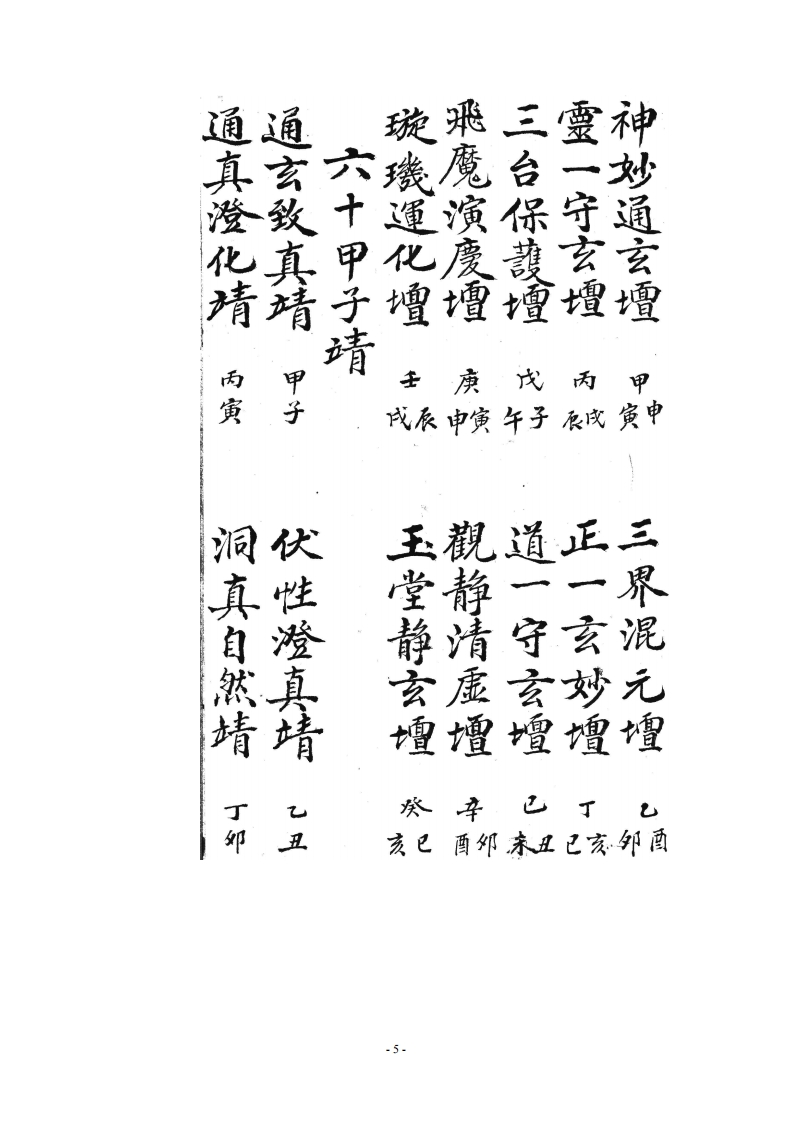 神妙通玄壇 甲申寅 三界混元壇 乙酉卯
靈一守玄壇 丙戌辰 正一玄妙壇 丁亥巳
三台保護壇 戊子午 道一守玄壇 己丑未
飛魔演慶壇 庚寅申 觀靜清虛壇 辛卯酉
璇璣運化壇 壬辰戌 玉堂靜玄壇 癸巳亥
六十甲子靖
通玄致真靖 甲子 伏性澄真靖 乙丑
通真澄化靖 丙寅 洞真自然靖 丁卯
- 5 -